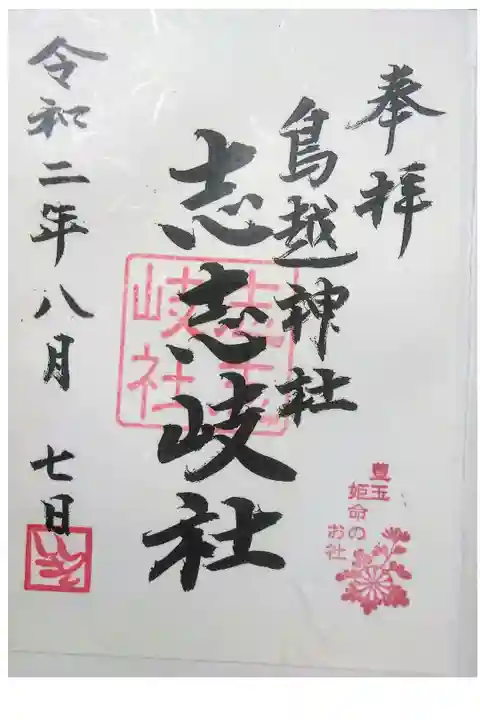 奉拝
鳥越神社
志志岐社
志志
岐社
令和二年八月 七日
豊玉
姫命の
お社